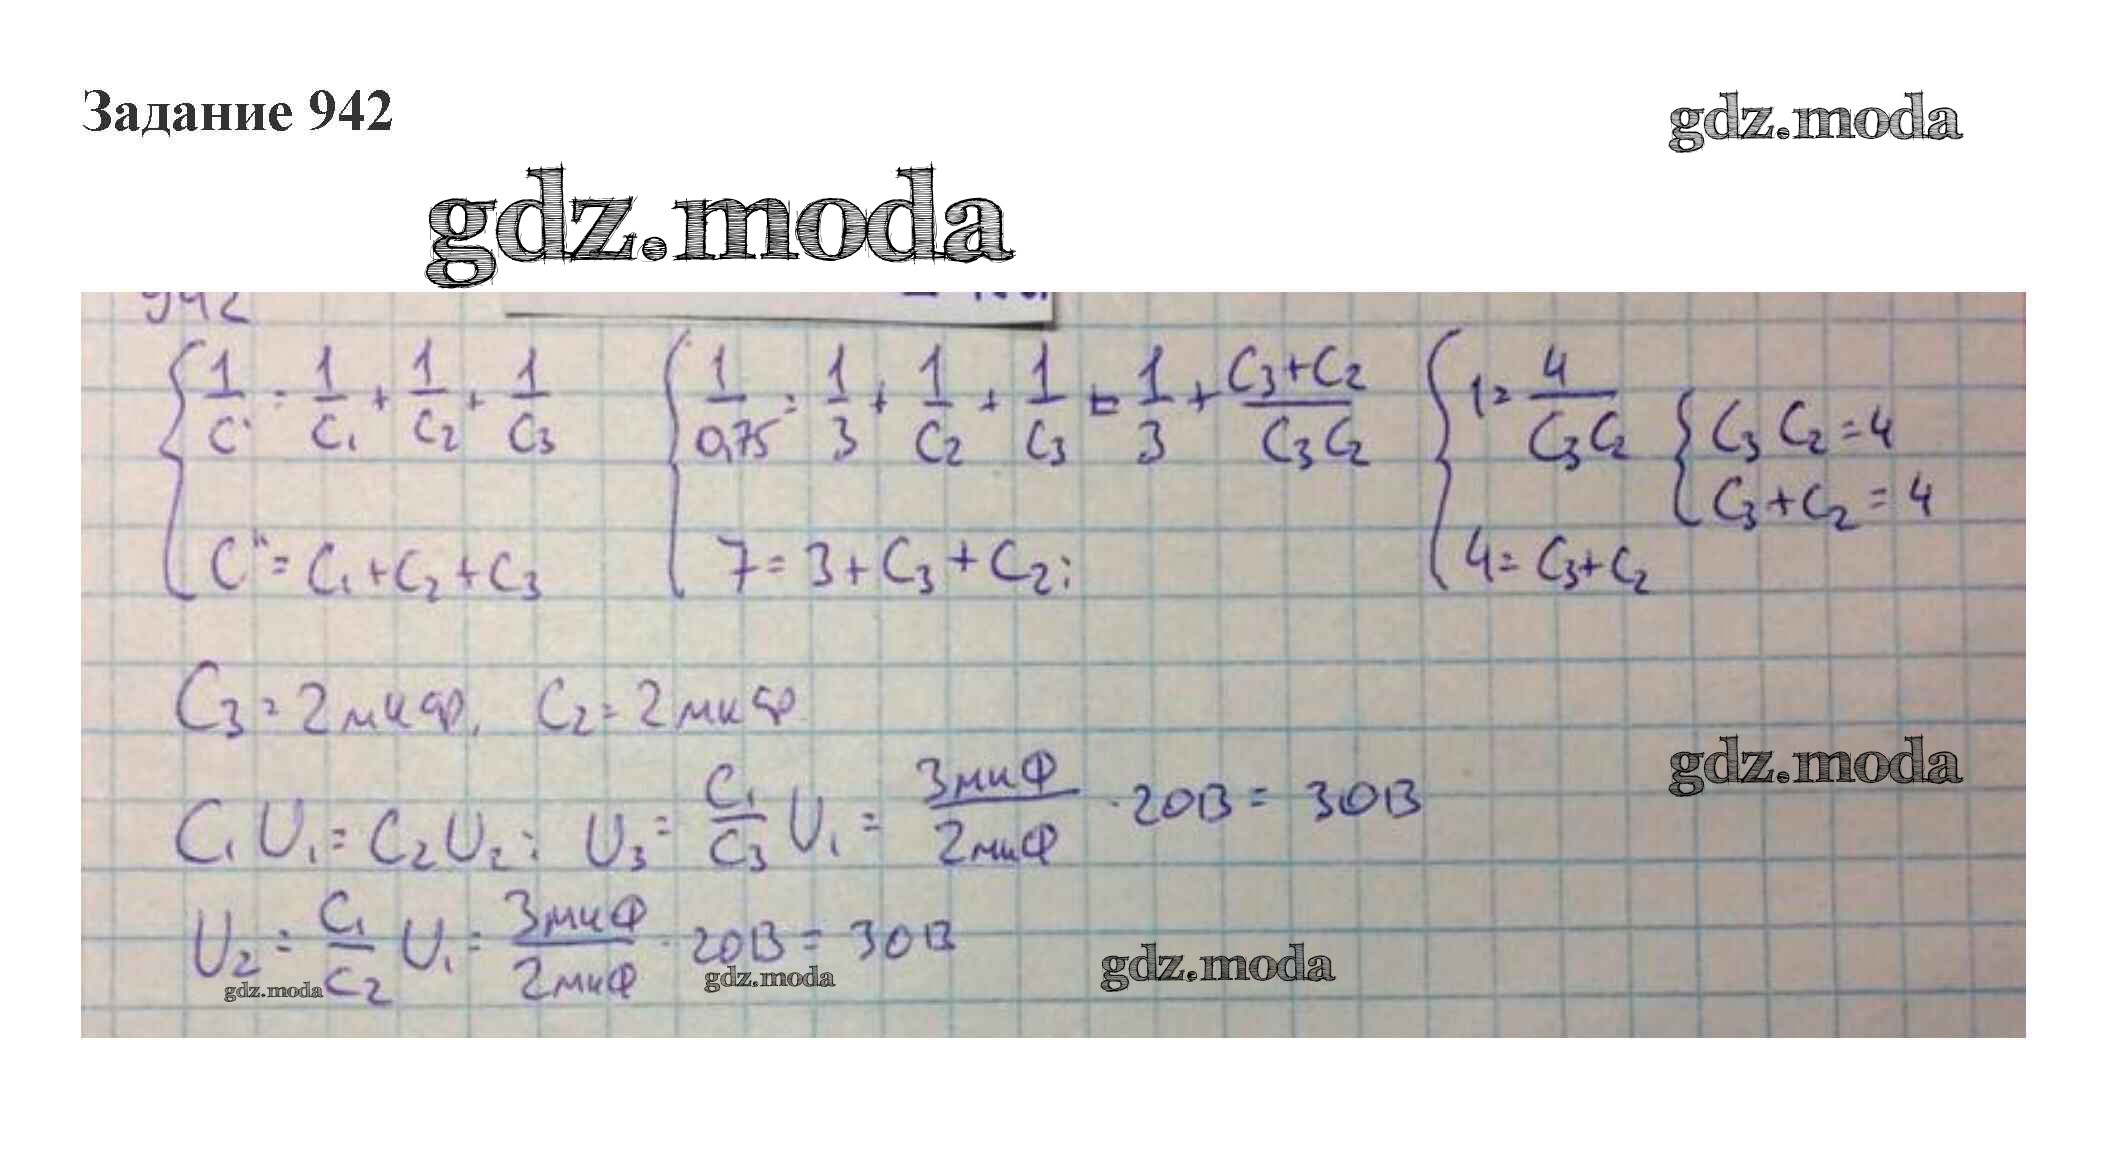 Задание 942
gdz.moda
gdz.moda
942
1/C' = 1/C₁ + 1/C₂ + 1/C₃
1/0,75 = 1/3 + 1/C₂ + 1/C₃ = 1/3 + (C₃+C₂)/(C₃C₂)
1 = 4/(C₃C₂)
C₃C₂ = 4
C₃+C₂ = 4
C" = C₁+C₂+C₃
7 = 3+C₃+C₂;
4 = C₃+C₂
C₃ = 2мкФ, C₂ = 2мкФ
gdz.moda
C₁U₁ = C₂U₂; U₃ = C₁/C₃ U₁ = 3мкФ/2мкФ · 20В = 30В
U₂ = C₁/C₂ U₁ = 3мкФ/2мкФ · 20В = 30В
gdz.moda
gdz.moda
gdz.moda